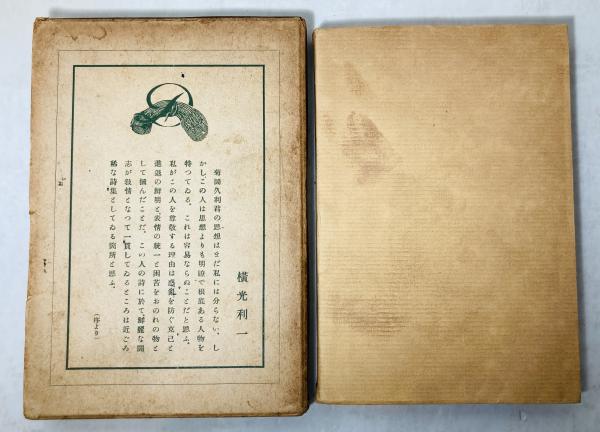 横光利一
菊岡久利君の思想はまだ私には分らない。し
かし、この人は思想よりも明瞭で根底ある人物を
持つてゐる。これは容易ならぬことだと思ふ。
私がこの人を尊敬する理由は惑亂を防ぐ克己と
進退の鮮明と、表情の統一と困苦をおのれの物と
して掴んだことだ。この人の詩に於て鮮麗な闘
志が敍情となつて一貫してゐるところは近ごろ
稀な詩集としてゐる箇所と思ふ。
（序より）